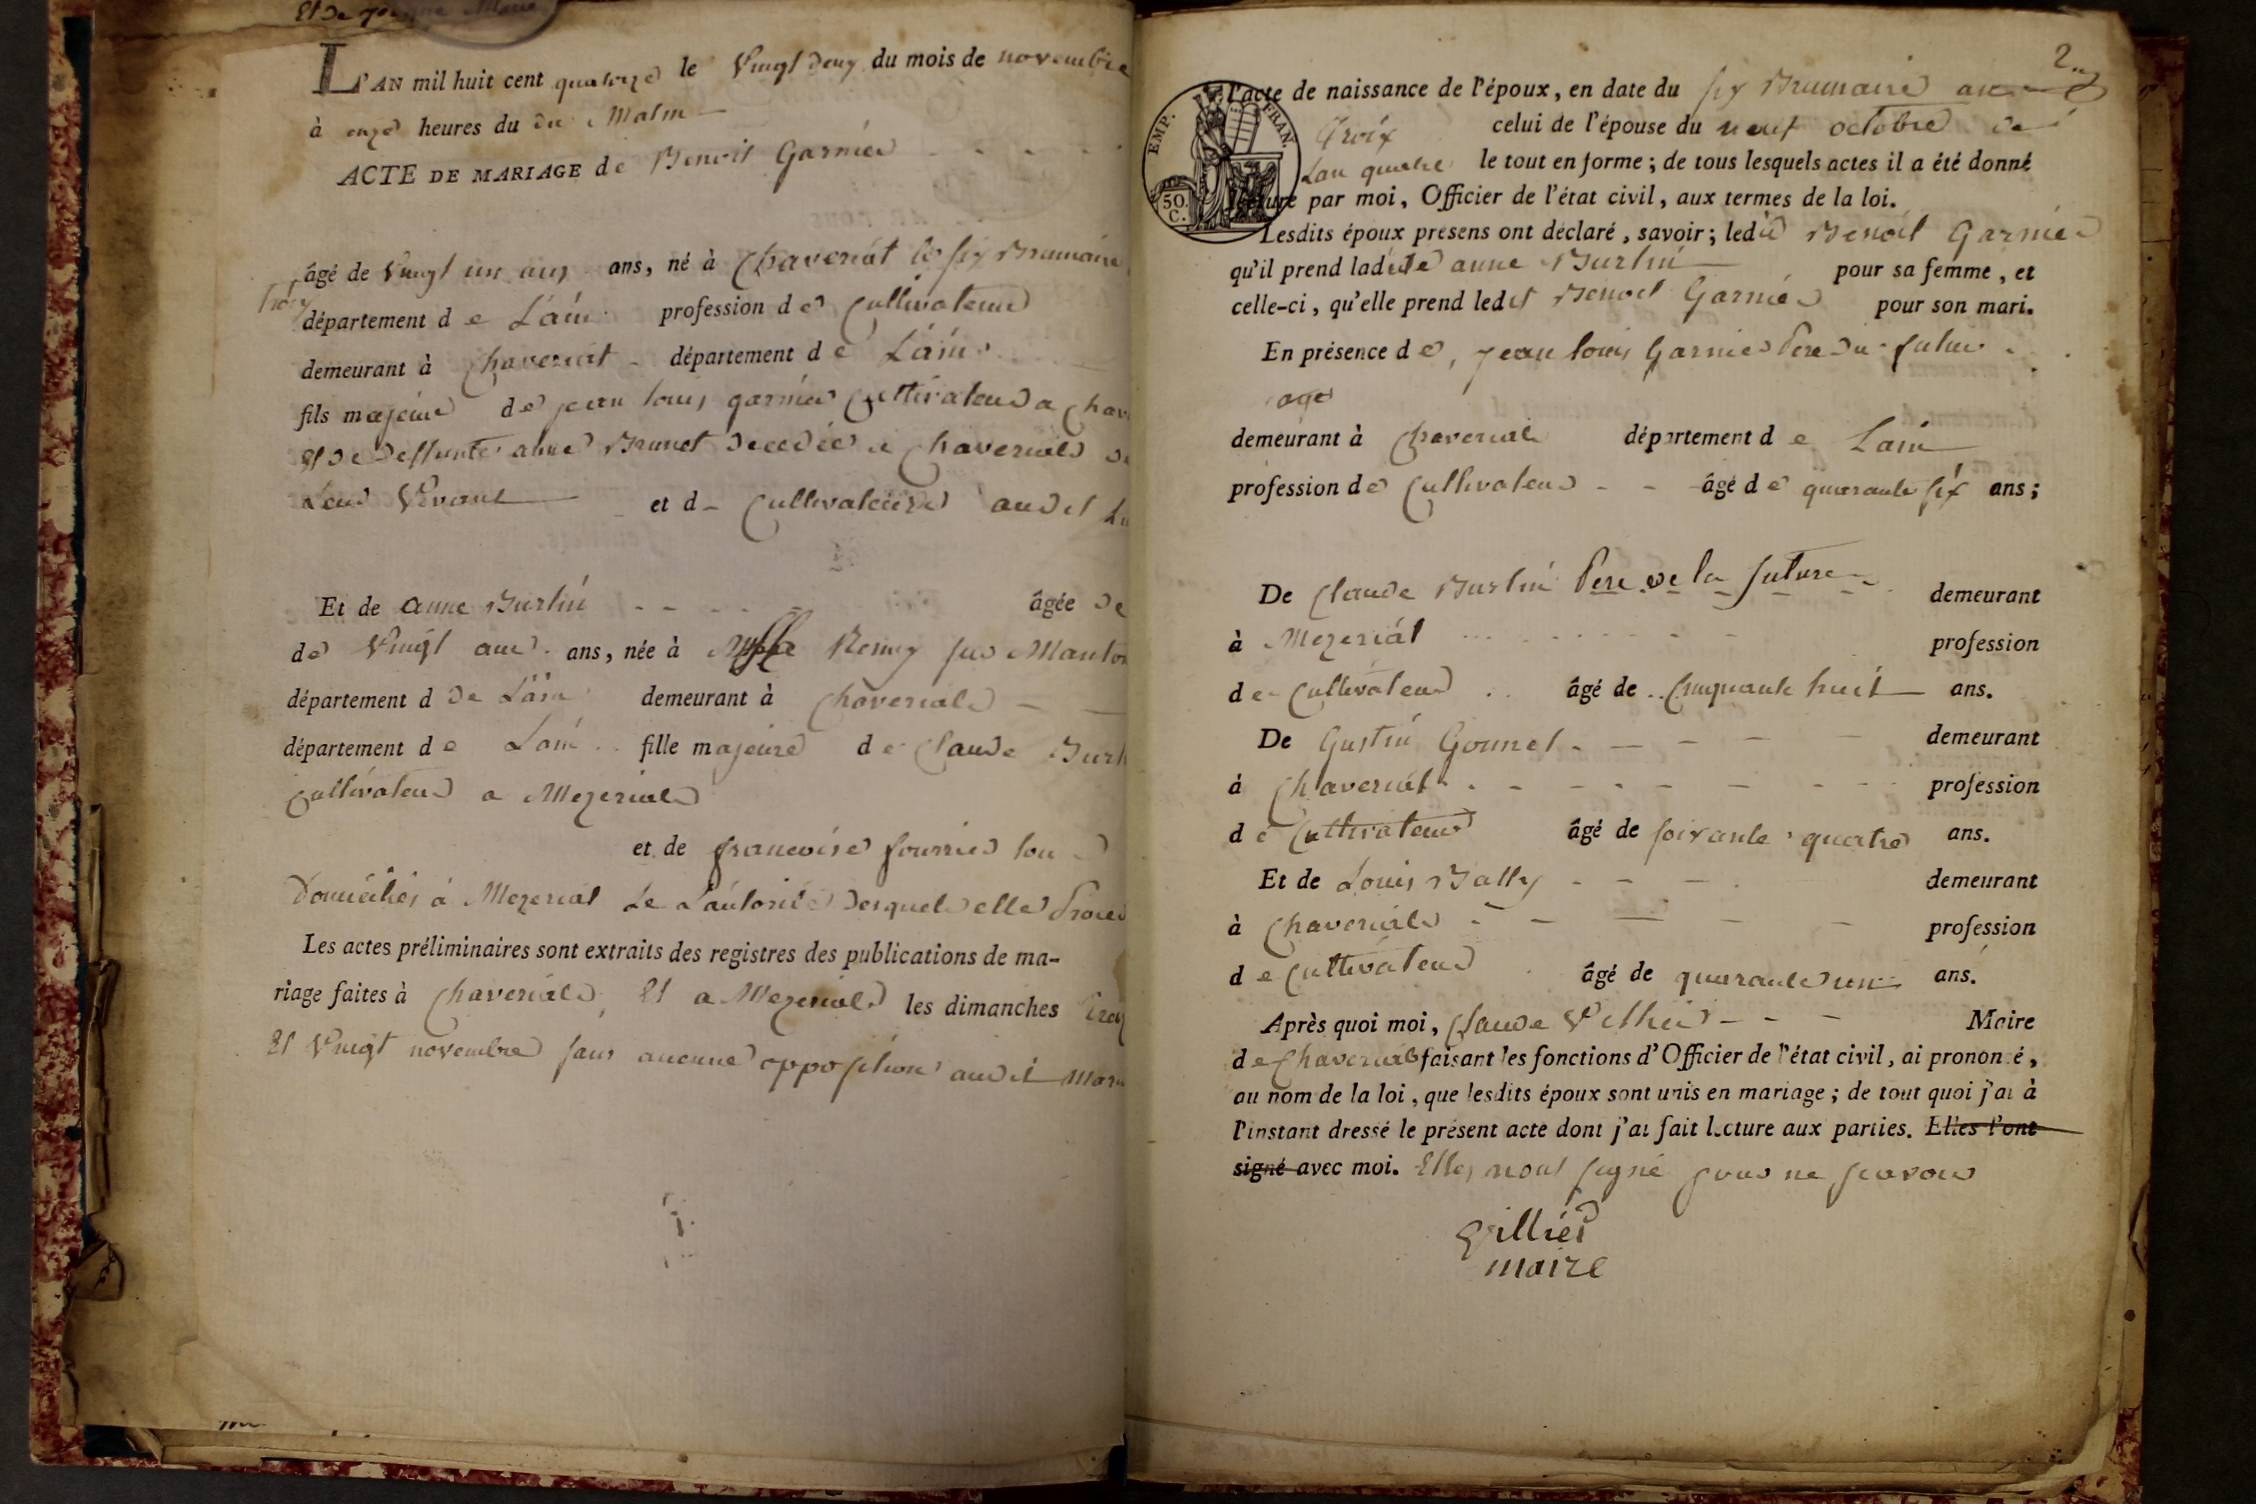 Et de jeanne Marie
L'AN mil huit cent quatorze le Vingt deux du mois de novembre
à onze heures du du Matin
ACTE DE MARIAGE de Benoit Garnier
âgé de Vingt un ans ans, né à Chaveriat le six Brumaire
trois
département de L'ain profession de Cultivateur
demeurant à Chaveriat département de L'ain
fils majeur de jean louis garnier Cultivateur a Chav
Et de deffunte anne Brunet decedée a Chaveriat
et d Cultivateurs audit
Et de anne Burtin âgée de
de Vingt ans, née à Remy sur Manton
département d De L'ain demeurant à Chaveriat
département de Lain fille majeure de Claude Burt
Cultivateur a Mezeriat
et de francoise fourrier tou
Domiciliés à Mezeriat De L'autorité desquels elle Proce
Les actes préliminaires sont extraits des registres des publications de ma-
riage faites à Chaveriat, Et a Mezeriat les dimanches treiz
Et Vingt novembre sans aucunne opposition audit mari
2
l'acte de naissance de l'époux, en date du six Brumaire an
EMP. FRAN.
50. C.
trois celui de l'épouse du neuf octobre de
Lan quatre le tout en forme; de tous lesquels actes il a été donné
lecture par moi, Officier de l'état civil, aux termes de la loi.
Lesdits époux présens ont déclaré, savoir; ledit Benoit Garnier
qu'il prend ladite anne Burtin pour sa femme, et
celle-ci, qu'elle prend ledit Benoit Garnier pour son mari.
En présence de, jean louis Garnier Pere du futur
age
demeurant à Chaveriat département de Lain
profession de Cultivateur âgé de quarante six ans;
De Claude Burtin Pere de la future demeurant
à Mezeriat profession
de Cultivateur âgé de Cinquante huit ans.
De Gustin Gonnet demeurant
à Chaveriat profession
de Cultivateur âgé de soixante quatre ans.
Et de Louis Bally demeurant
à Chaveriat profession
de Cultivateur âgé de quarante un ans.
Après quoi moi, Claude Villier Maire
de Chaveriat faisant les fonctions d'Officier de l'état civil, ai prononcé,
au nom de la loi, que lesdits époux sont unis en mariage; de tout quoi j'ai à
l'instant dressé le présent acte dont j'ai fait lecture aux parties. Elles l'ont
signé avec moi. Elles nont signé pour ne savoir
Villier
maire